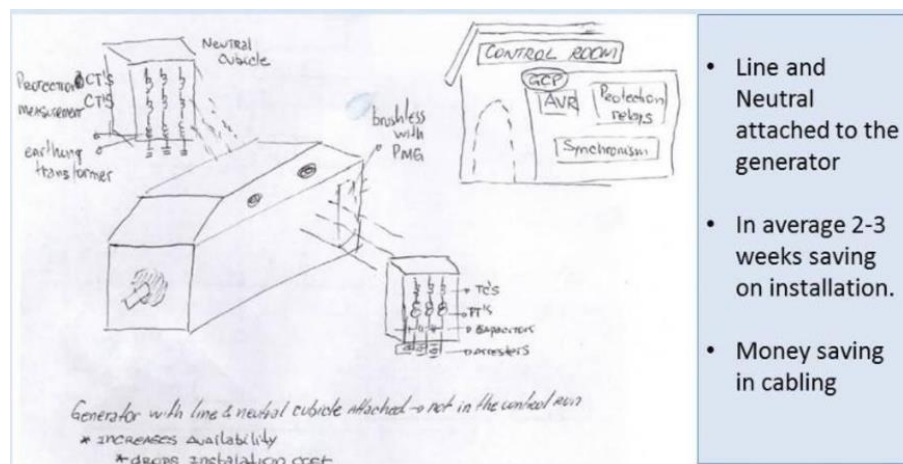 NEUTRAL
CUBICLE
PROTECTION CT'S
CT'S
MEASUREMENT
earthing
transformer
brushless
with
PMG
CONTROL ROOM
GCP
AVR
Protection
relays
Synchronism
TC'S
PT'S
capacitors
arresters
Generator with line & neutral cubicle attached → not in the control
* INCREASES Availability
* DROPS Instalation cost
• Line and
Neutral
attached to the
generator
• In average 2-3
weeks saving
on installation.
• Money saving
in cabling